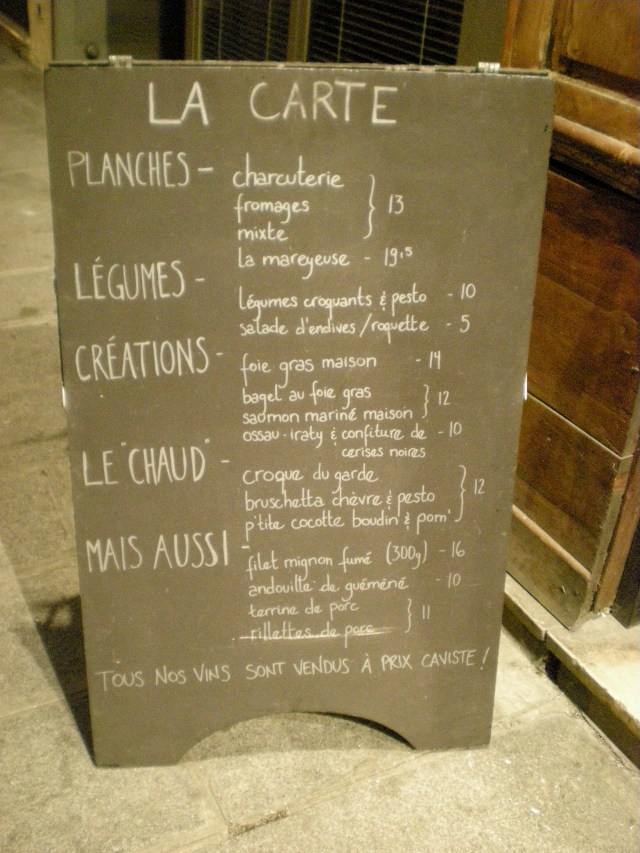 LA CARTE
PLANCHES - charcuterie
fromages } 13
mixte
la mareyeuse - 19,5
LÉGUMES -
légumes croquants & pesto - 10
salade d'endives/roquette - 5
CRÉATIONS - foie gras maison - 14
bagel au foie gras } 12
saumon mariné maison
ossau-iraty & confiture de - 10
cerises noires
LE "CHAUD" - croque du garde
bruschetta chèvre & pesto } 12
p'tite cocotte boudin & pom'
MAIS AUSSI - filet mignon fumé (300g) - 16
andouille de guéméné - 10
terrine de porc } 11
rillettes de porc
TOUS NOS VINS SONT VENDUS À PRIX CAVISTE !